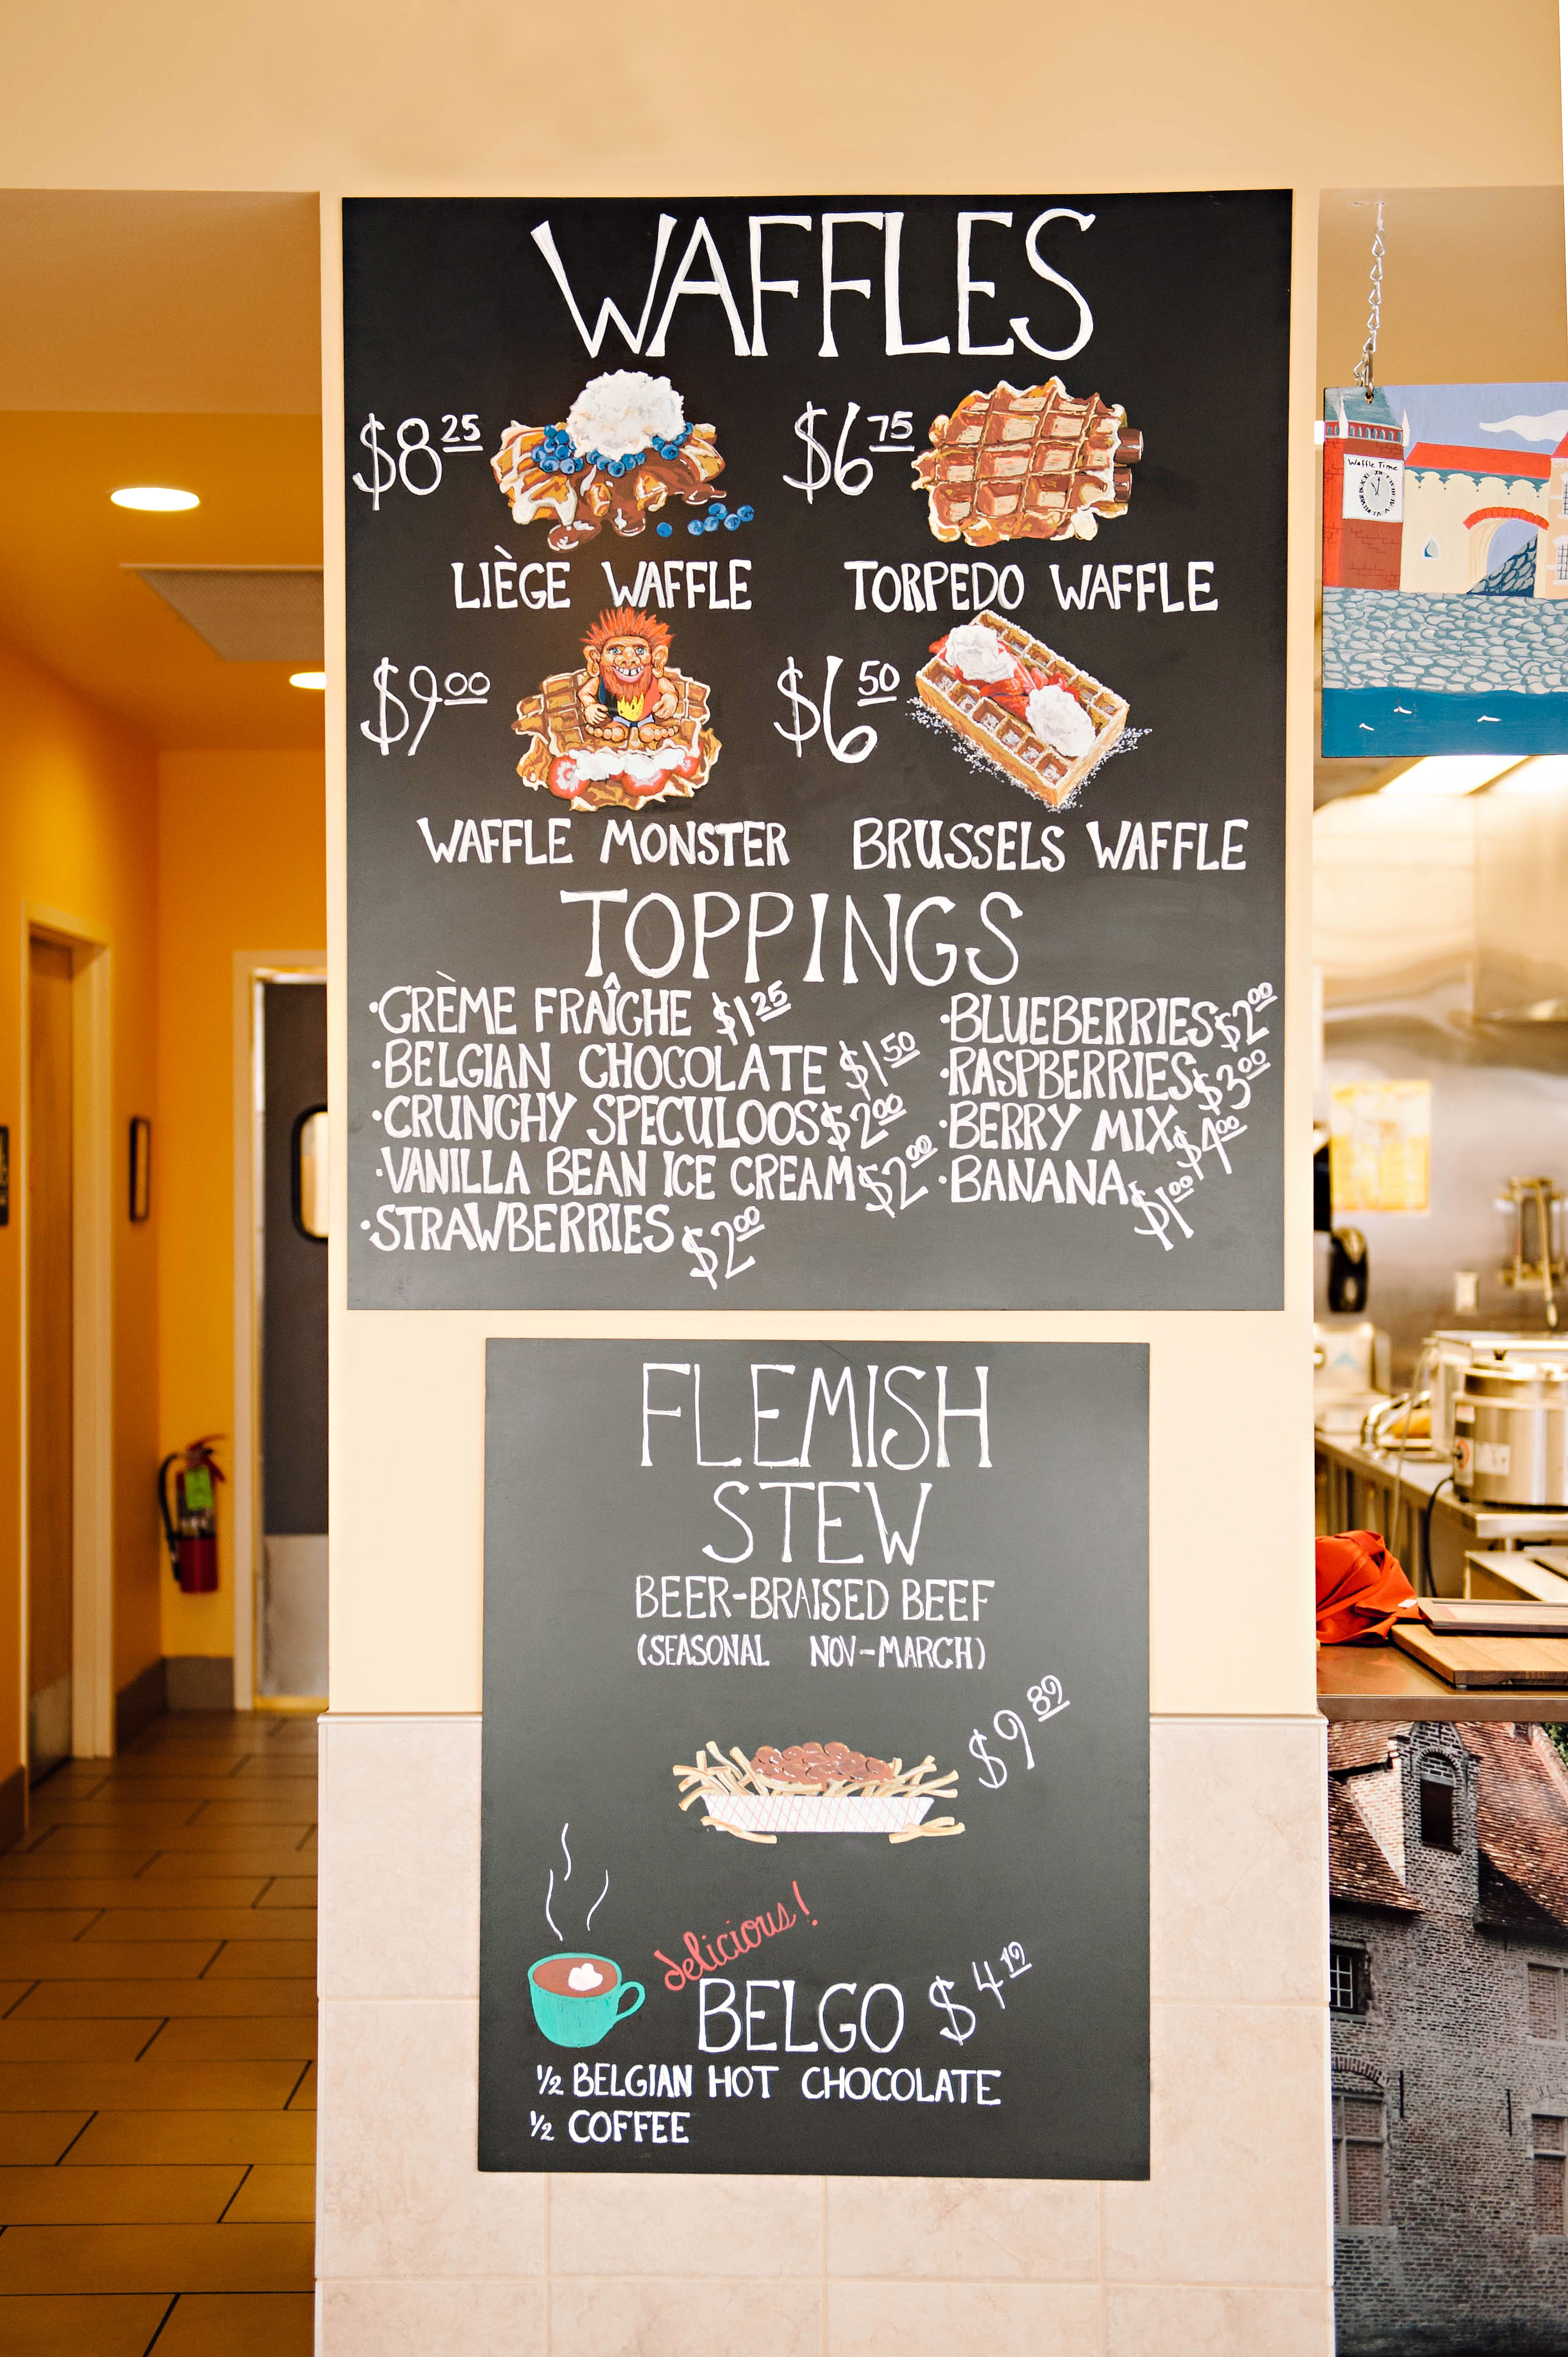 WAFFLES
$8 25
$6 75
LIÈGE WAFFLE
TORPEDO WAFFLE
$9 00
$6 50
WAFFLE MONSTER
BRUSSELS WAFFLE
TOPPINGS
·CRÈME FRAÎCHE $1 25
·BELGIAN CHOCOLATE $1 50
·CRUNCHY SPECULOOS $2 00
·VANILLA BEAN ICE CREAM $2 00
·STRAWBERRIES $2 00
·BLUEBERRIES $2 00
·RASPBERRIES $3 00
·BERRY MIX $4 00
·BANANA $1 00
FLEMISH
STEW
BEER-BRAISED BEEF
(SEASONAL NOV-MARCH)
$9 89
delicious!
BELGO $4 19
1/2 BELGIAN HOT CHOCOLATE
1/2 COFFEE
Waffle Time